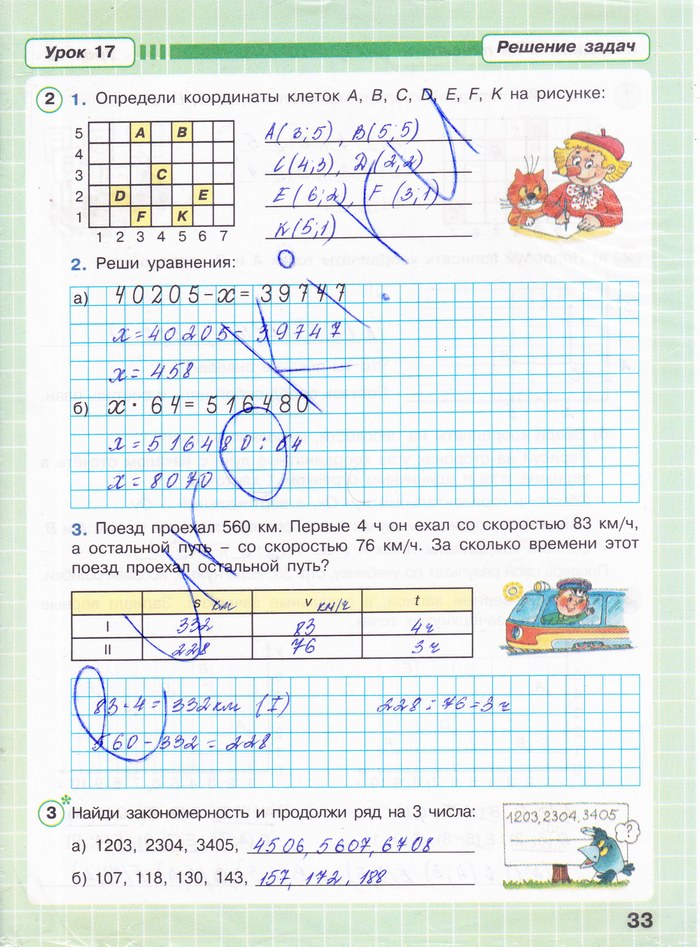 Урок 17
Решение задач
2 1. Определи координаты клеток A, B, C, D, E, F, K на рисунке:
5 A B
4
3 C
2 D E
1 F K
1 2 3 4 5 6 7
A(3;5), B(5;5)
C(4;3), D(2;2)
E(6;2), F(3;1)
K(5;1)
2. Реши уравнения:
а) 40205-x=39747
x=40205-39747
x=458
б) x·64=516480
x=516480:64
x=8070
3. Поезд проехал 560 км. Первые 4 ч он ехал со скоростью 83 км/ч,
а остальной путь – со скоростью 76 км/ч. За сколько времени этот
поезд проехал остальной путь?
s км v км/ч t
I 332 83 4ч
II 228 76 3ч
83·4=332км (I) 228:76=3ч
560-332=228
3* Найди закономерность и продолжи ряд на 3 числа:
1203, 2304, 3405
?
а) 1203, 2304, 3405, 4506, 5607, 6708
б) 107, 118, 130, 143, 157, 172, 188
33